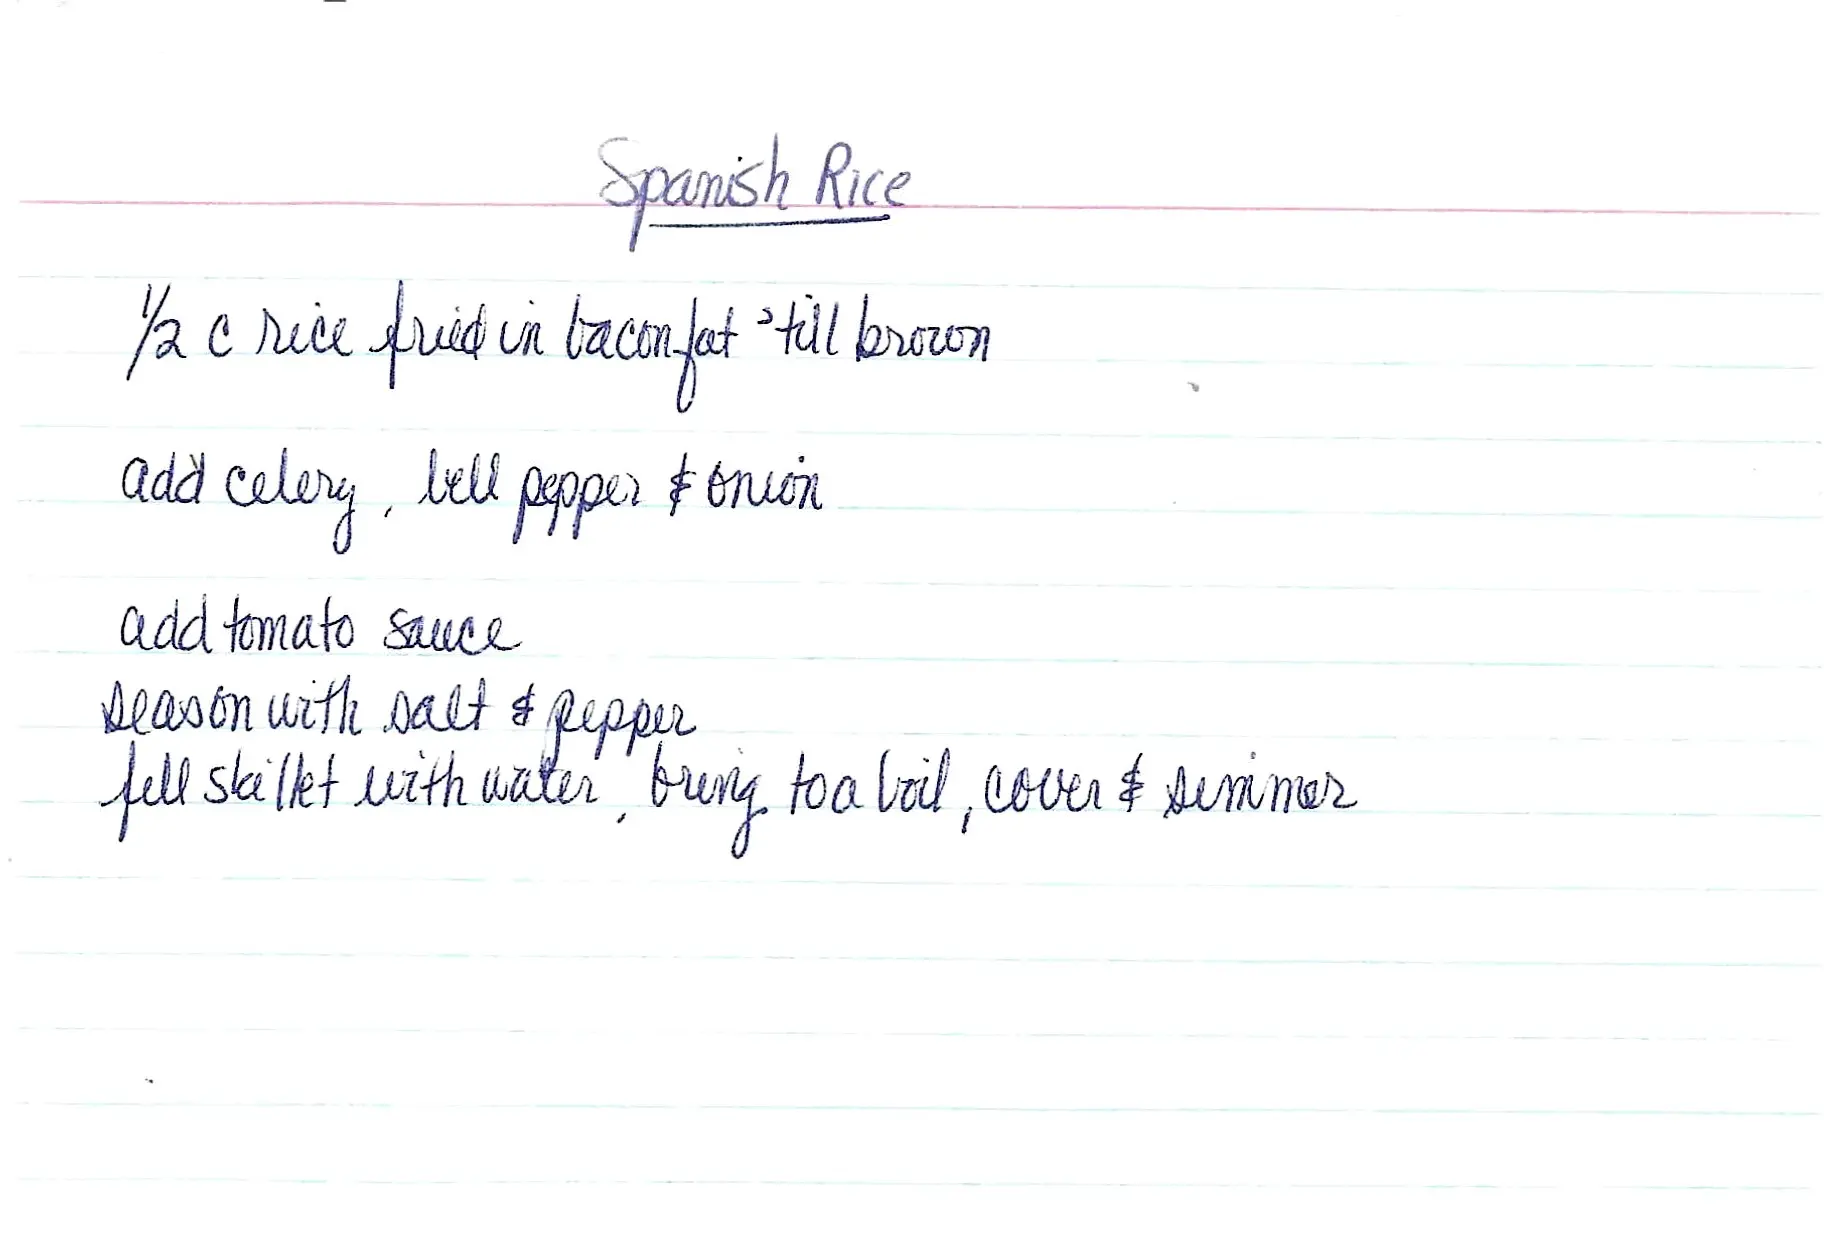 Spanish Rice
1/2 c rice fried in bacon fat 'till brown
add celery, bell pepper & onion
add tomato sauce
season with salt & pepper
fill skillet with water, bring to a boil, cover & simmer